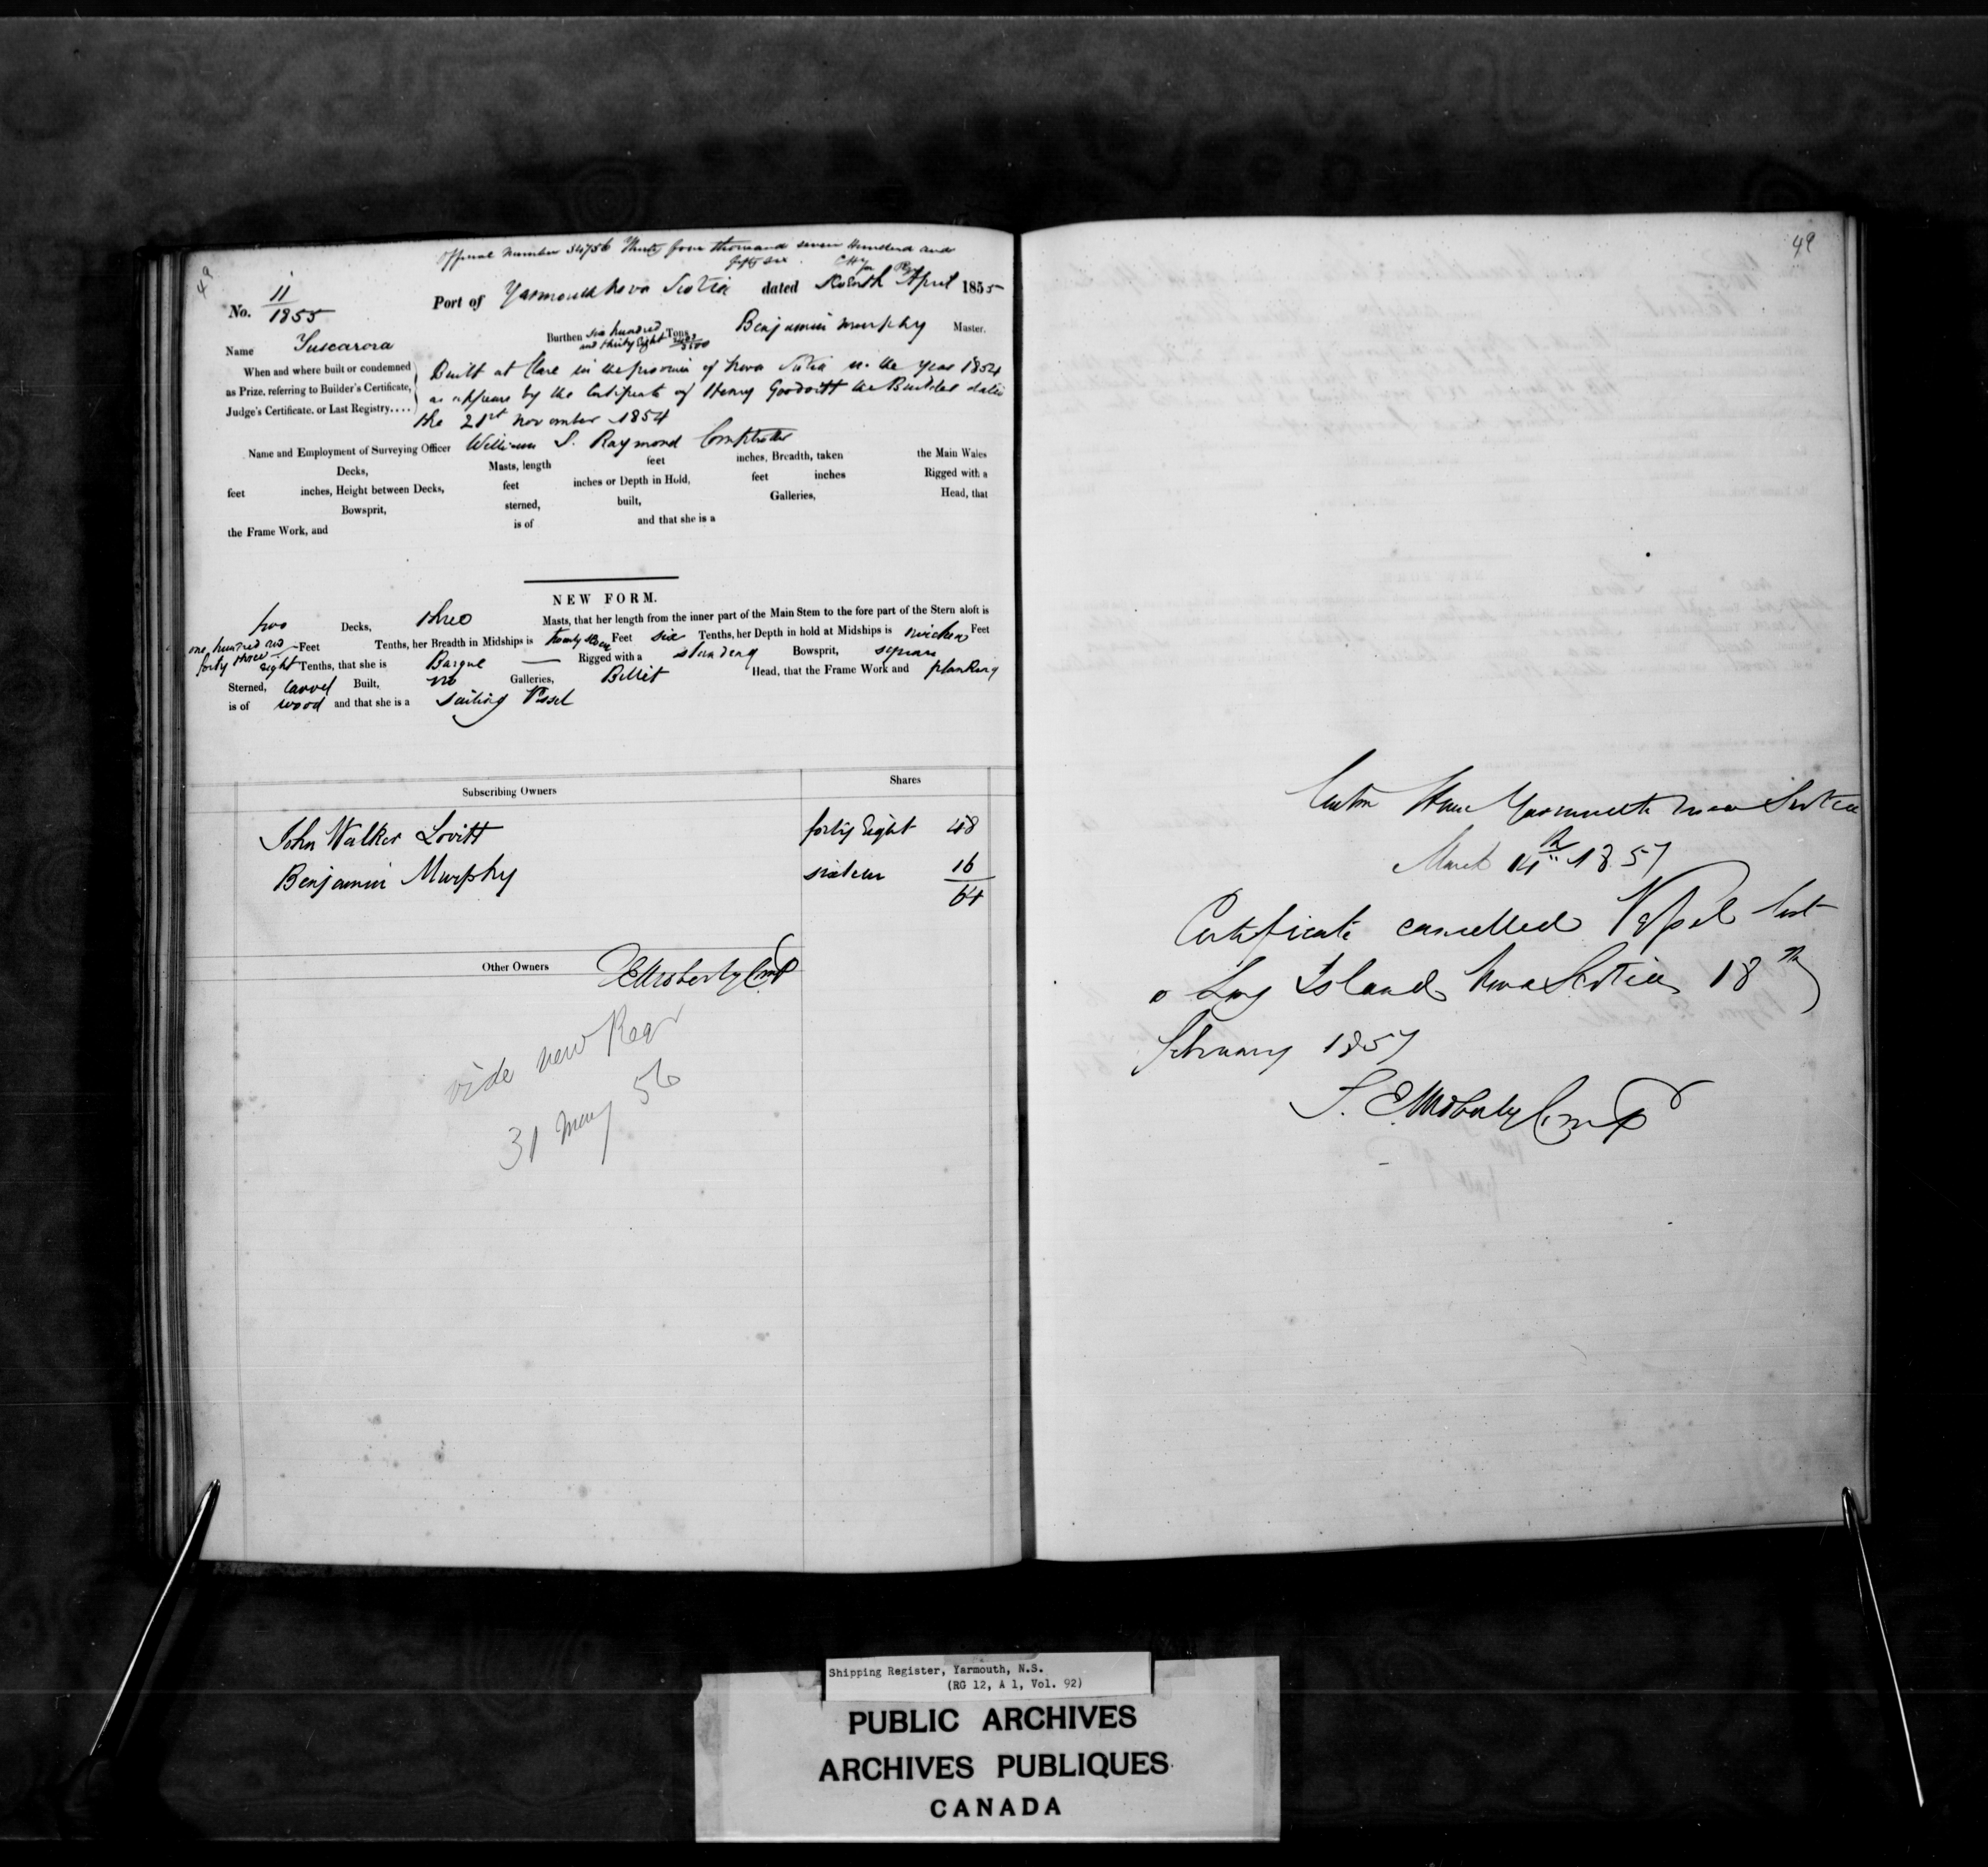 49
Official Number 34756 Thirty four thousand seven Hundred and
fifty six
No. 11/1855 Port of Yarmouth Nova Scotia dated April 1855
Name Tuscarora Burthen six hundred and thirty Eight Tons Benjamin Murphy Master.
When and where built or condemned as Prize, referring to Builder's Certificate, Judge's Certificate, or Last Registry....
Built at Clare in the province of Nova Scotia in the year 1854
as appears by the Certificate of Henry Goodwill the Builder dated
the 21st November 1854
Name and Employment of Surveying Officer William S. Raymond Comptroller
Decks, Masts, length feet inches, Breadth, taken the Main Wales
feet inches, Height between Decks, feet inches or Depth in Hold, feet inches Rigged with a
Bowsprit, sterned, built, Galleries, Head, that
the Frame Work, and is of and that she is a
NEW FORM.
two Decks, three Masts, that her length from the inner part of the Main Stem to the fore part of the Stern aloft is
one hundred and forty three Feet Tenths, her Breadth in Midships is twenty seven Feet six Tenths, her Depth in hold at Midships is Feet
eight Tenths, that she is Barque Rigged with a standing Bowsprit, square
Sterned, carvel Built, no Galleries, Billet Head, that the Frame Work and planking
is of wood and that she is a Sailing Vessel
Subscribing Owners Shares
John Walker Lovitt forty Eight 48
Benjamin Murphy sixteen 16
64
Other Owners
vide new Regr
31 May 56
49
Custom House Yarmouth Nova Scotia
March 14th 1857
Certificate cancelled Vessel lost
o Long Island Nova Scotia 18th
February 1857
Shipping Register, Yarmouth, N.S.
(RG 12, A 1, Vol. 92)
PUBLIC ARCHIVES
ARCHIVES PUBLIQUES
CANADA